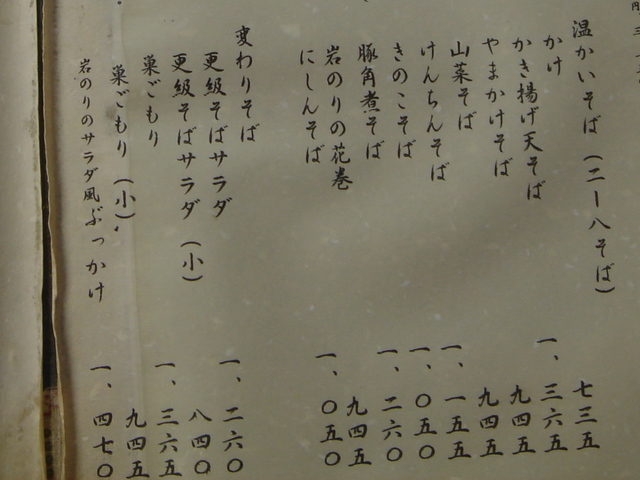 温かいそば（二―八そば）
かけ 七三五
かき揚げ天そば 一、三六五
やまかけそば 九四五
山菜そば 九四五
けんちんそば 一、一五五
きのこそば 一、〇五〇
豚角煮そば 一、二六〇
岩のりの花巻 九四五
にしんそば 一、〇五〇
変わりそば
更級そばサラダ 一、二六〇
更級そばサラダ（小） 八四〇
巣ごもり 一、三六五
巣ごもり（小） 九四五
岩のりのサラダ風ぶっかけ 一、四七〇